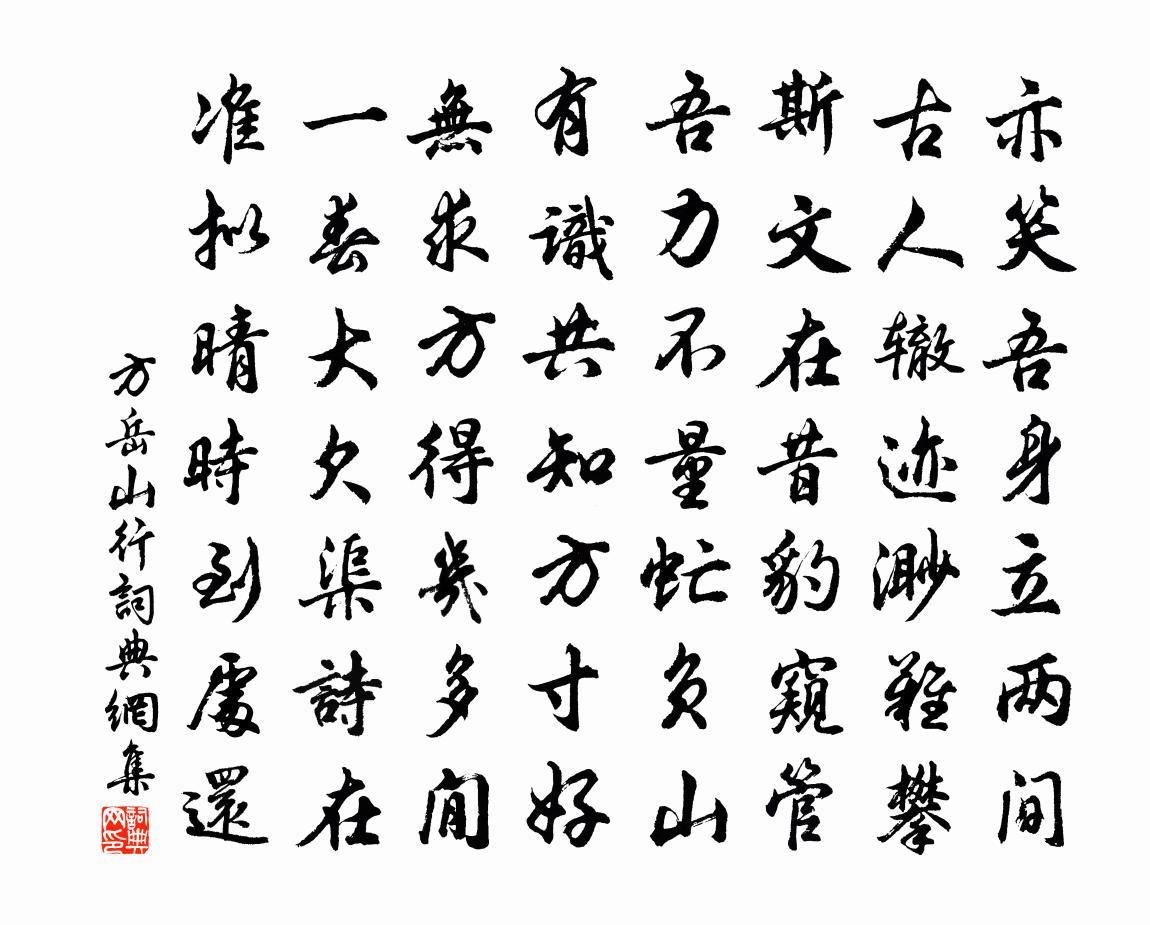 亦笑吾身立两间
古人辙迹渺難攀
斯文在昔豹窺管
吾力不量虻负山
有識共知方寸好
無求方得幾多閒
一春大欠渠詩在
准拟晴時到處還
方岳山行詞典網集
詞典网印